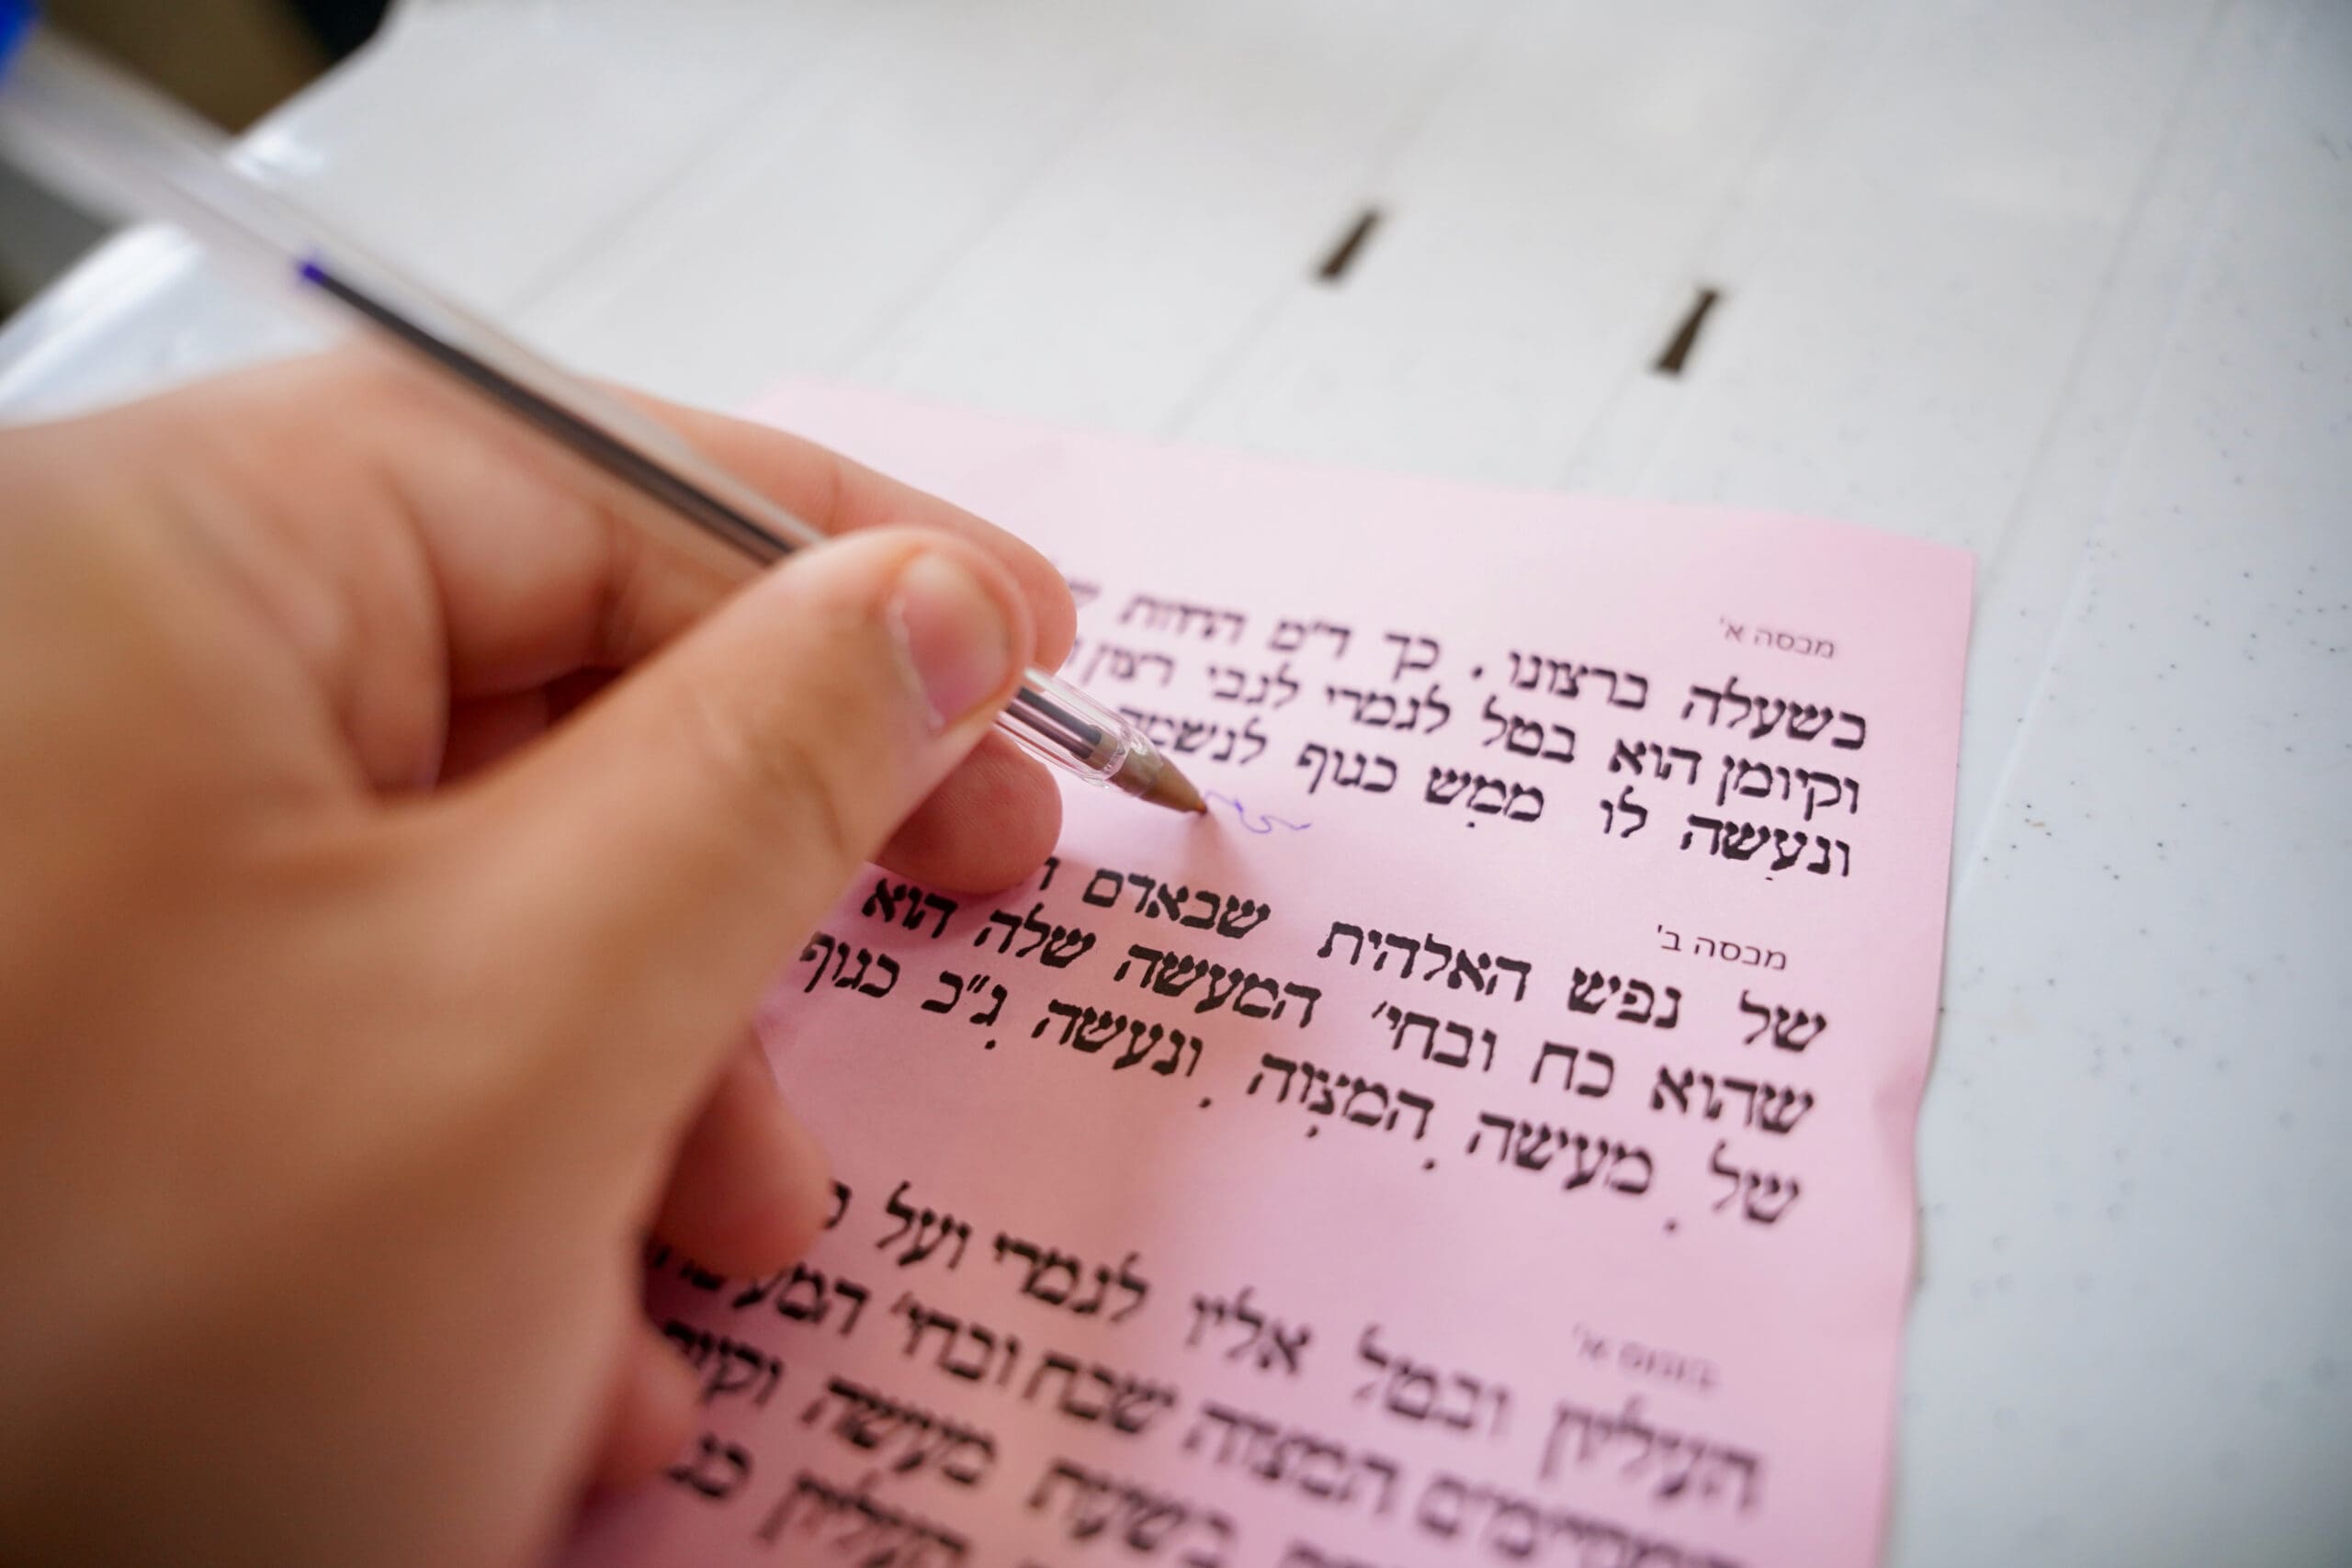 מכסה א'
כשעלה ברצונו. כך ד"מ החיות
וקיומן הוא בטל לגמרי לגבי רצון
ונעשה לו ממש כגוף לנשמה
מכסה ב'
של נפש האלהית שבאדם
שהוא כח ובחי' המעשה שלה הוא
של מעשה המצוה ונעשה ג"כ כגוף
בונוס א'
העליון ובטל אליו לגמרי ועל
המקיימים המצוה שכח ובחי'
בשעת מעשה
העליון